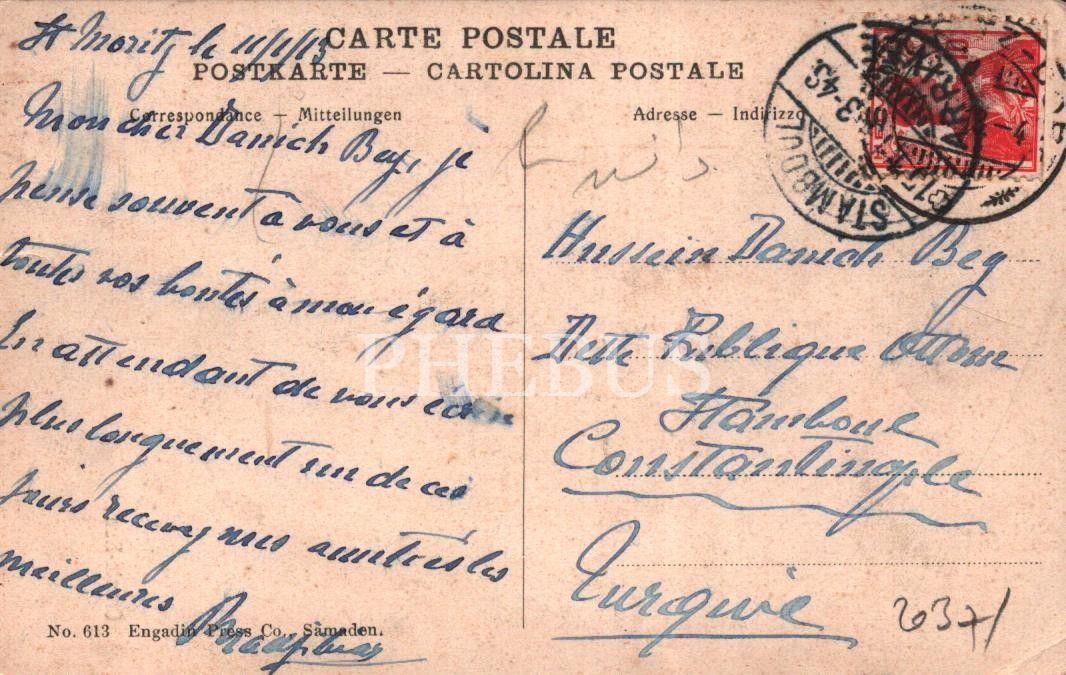 CARTE POSTALE
POSTKARTE — CARTOLINA POSTALE
Correspondance — Mitteilungen
Adresse — Indirizzo
St Moritz le 11/1/13
Mon cher Danich Bey, je
pense souvent à vous et à
toutes vos bontés à mon égard
En attendant de vous écrire
plus longuement un de ces
jours recevez mes amitiés les
meilleures
Hussein Danich Bey
Dette Publique Ottom
Stamboul
Constantinople
Turquie
STAMBOUL
PHEBUS
2037/
No. 613 Engadin Press Co., Samaden.